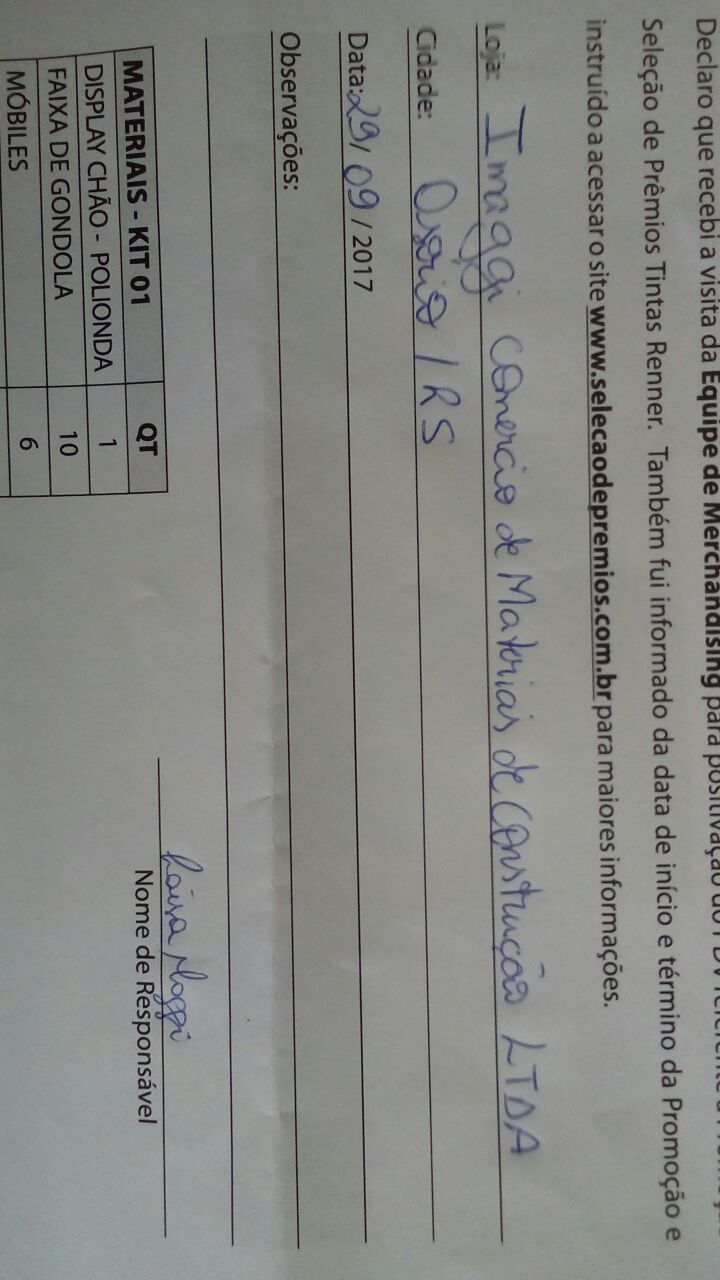 Declaro que recebi a visita da Equipe de Merchandising para positivação do PDV referente a
Seleção de Prêmios Tintas Renner. Também fui informado da data de início e término da Promoção e
instruído a acessar o site www.selecaodepremios.com.br para maiores informações.
Loja: Imaggi comercio de Materiais de Construção LTDA
Cidade: Osorio / RS
Data: 29/09/2017
Observações:
MATERIAIS - KIT 01 QT
DISPLAY CHÃO - POLIONDA 1
FAIXA DE GONDOLA 10
MÓBILES 6
Maggi
Nome de Responsável